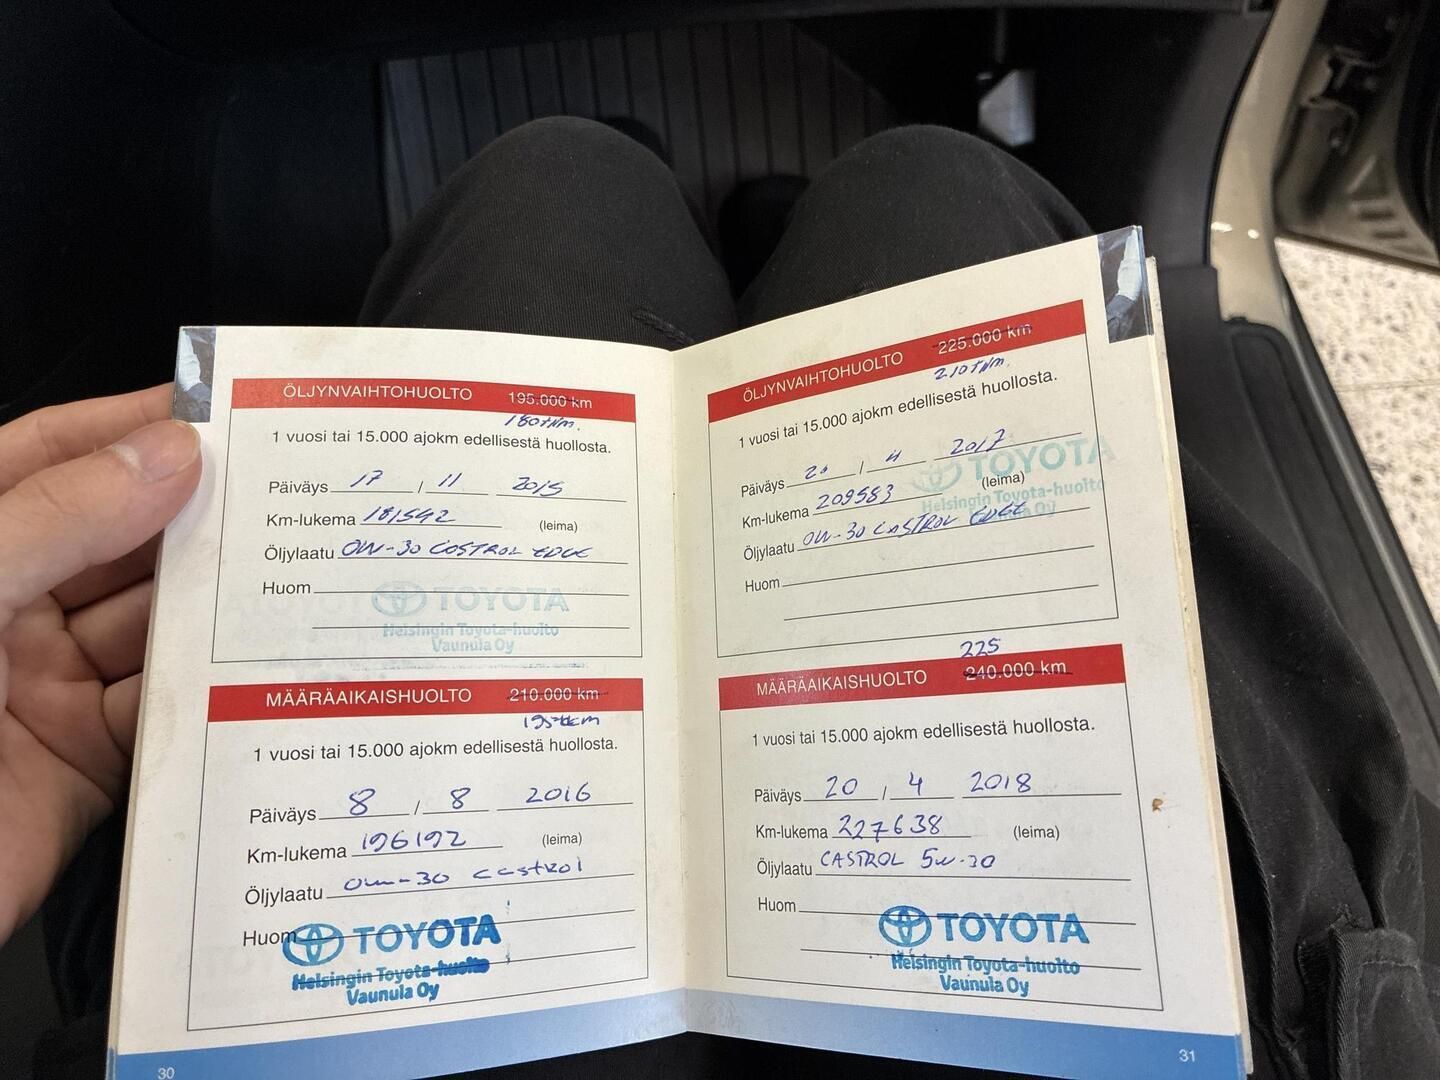 ÖLJYNVAIHTOHUOLTO 195.000 km
180tkm.
1 vuosi tai 15.000 ajokm edellisestä huollosta.
Päiväys 17 / 11 2015
Km-lukema 181542 (leima)
Öljylaatu 0W-30 CASTROL EDGE
Huom
TOYOTA
Helsingin Toyota-huolto
Vaunula Oy
MÄÄRÄAIKAISHUOLTO 210.000 km
195tkm
1 vuosi tai 15.000 ajokm edellisestä huollosta.
Päiväys 8 / 8 2016
Km-lukema 196192 (leima)
Öljylaatu 0w-30 castrol
Huom
TOYOTA
Helsingin Toyota-huolto
Vaunula Oy
30
ÖLJYNVAIHTOHUOLTO 225.000 km
210tkm.
1 vuosi tai 15.000 ajokm edellisestä huollosta.
Päiväys / 2017
TOYOTA
Km-lukema 209583 (leima)
Helsingin Toyota-huolto
Vaunula Oy
Öljylaatu 0W-30 CASTROL EDGE
Huom
225
MÄÄRÄAIKAISHUOLTO 240.000 km
1 vuosi tai 15.000 ajokm edellisestä huollosta.
Päiväys 20 / 4 2018
Km-lukema 227638 (leima)
Öljylaatu CASTROL 5W-30
Huom
TOYOTA
Helsingin Toyota-huolto
Vaunula Oy
31